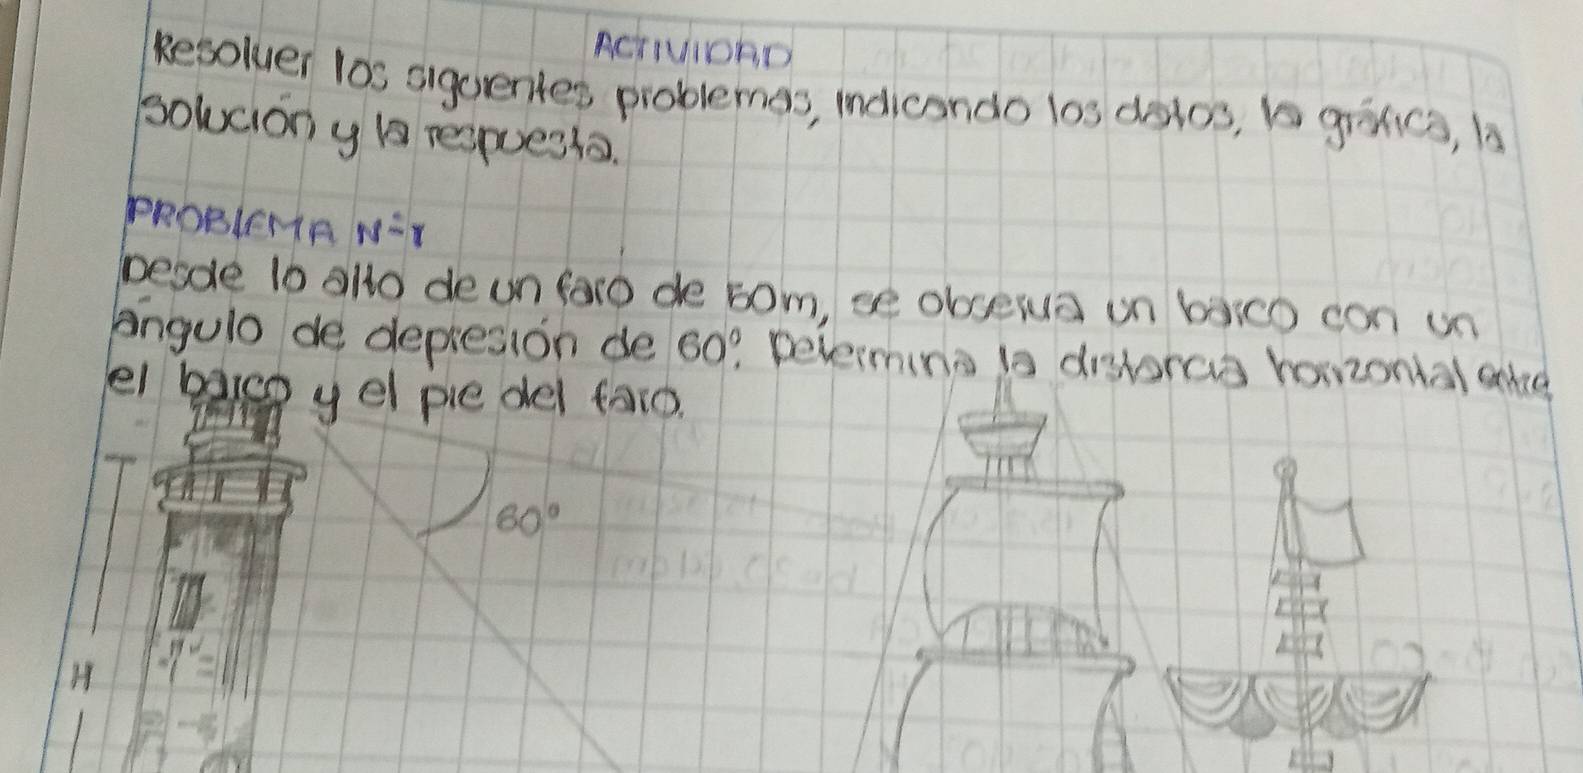 ACTIVIDAD
Resolver los siguientes problemas, indicando los datos, la gráfica, la
solución y la respuesta.
PROBLEMA N=1
Desde lo alto de un faro de 50m, se observa un barco con un
ángulo de depresión de 60°. Determina la distancia horizontal entre
el barco y el pie del faro.
60°
H